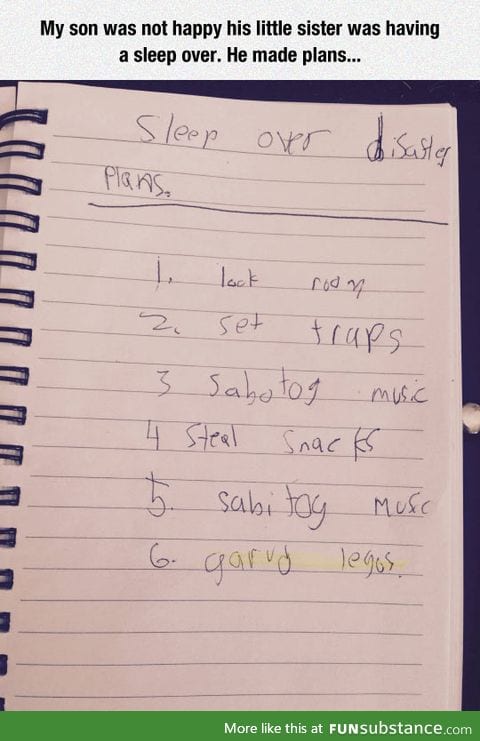 My son was not happy his little sister was having
a sleep over. He made plans...
Sleep over disaster
Plans.
1. lock room
2. set traps
3 Sabotog music
4 Steal Snacks
5. sabitog music
6. garud legos.
More like this at FUNsubstance.com